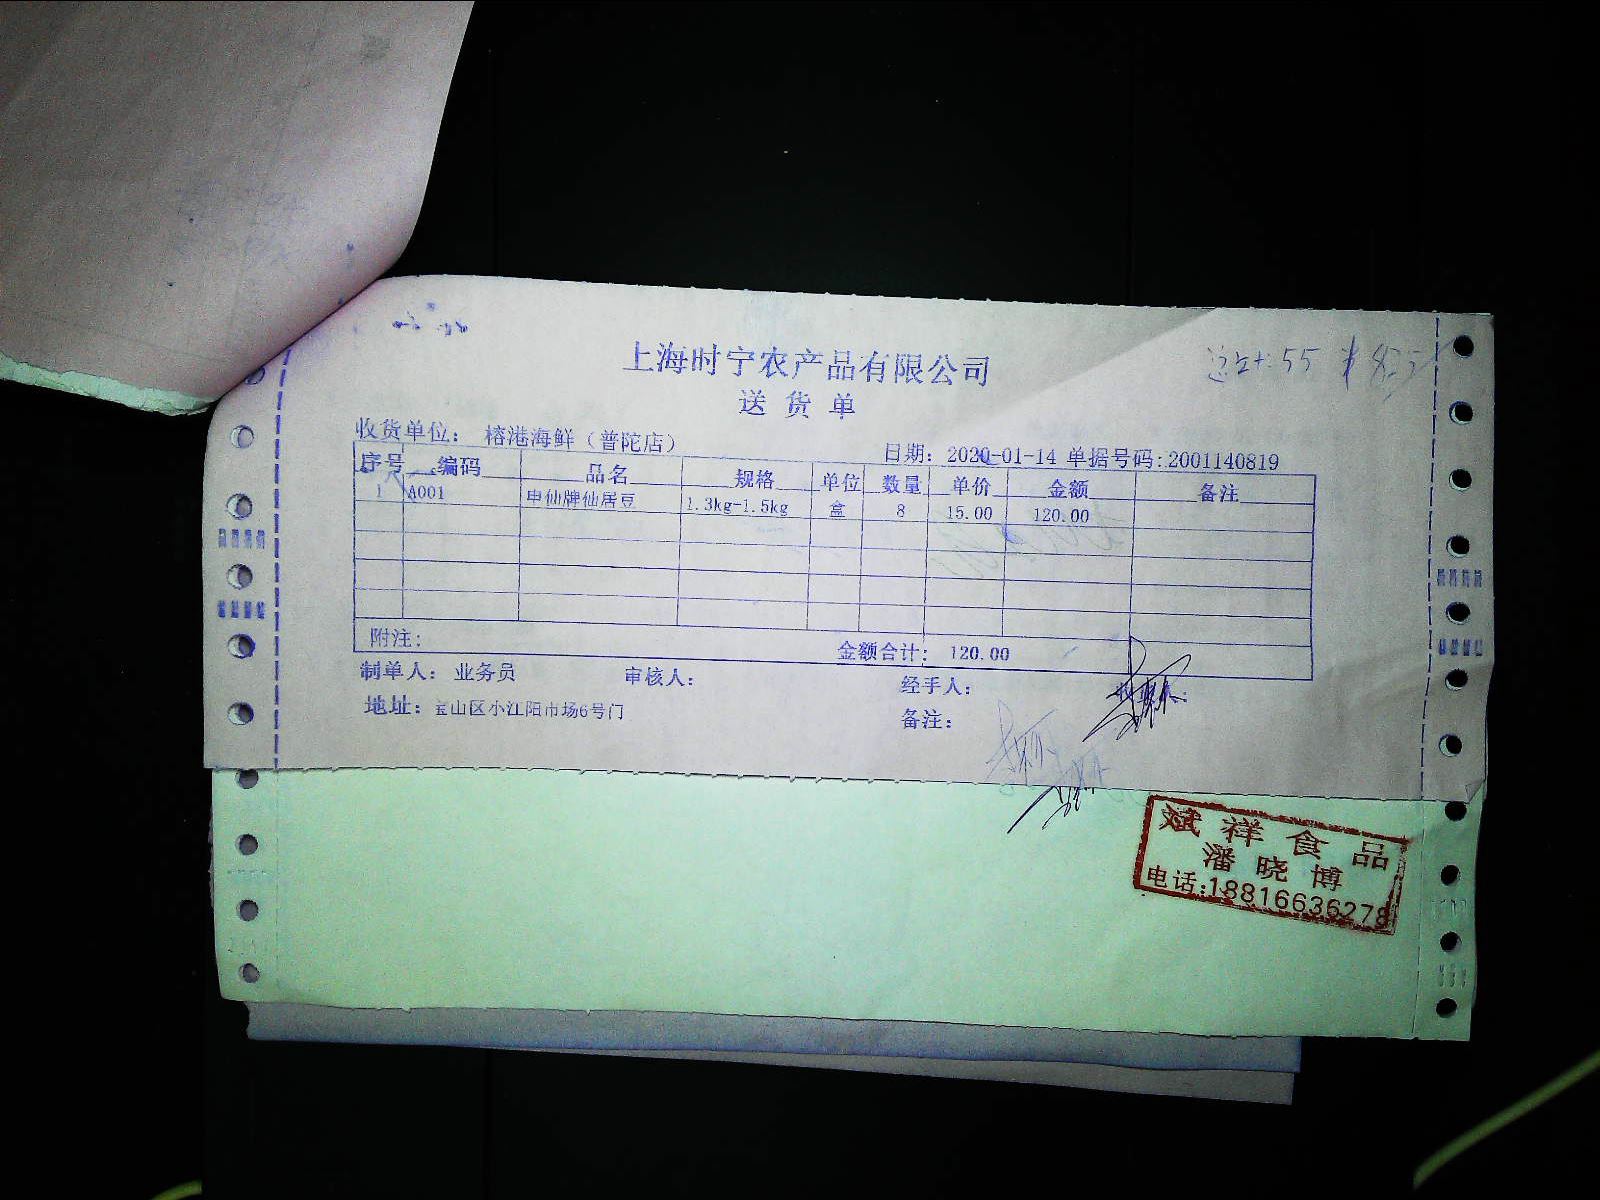 上海时宁农产品有限公司
送货单
收货单位： 榕港海鲜（普陀店） 日期: 2020-01-14 单据号码:2001140819
序号 编码 品名 规格 单位 数量 单价 金额 备注
1 A001 申仙牌仙居豆 1.3kg-1.5kg 盒 8 15.00 120.00
附注: 金额合计: 120.00
制单人: 业务员 审核人: 经手人:
地址: 宝山区小江阳市场6号门 备注:
斌祥食品
潘晓博
电话:18816636278